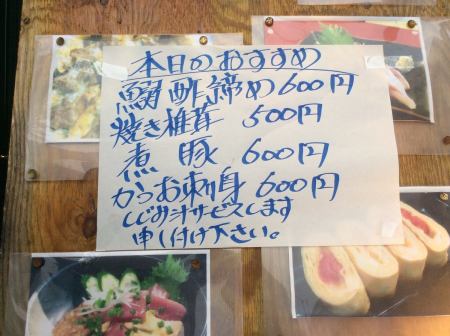 本日のおすすめ
鰯酢締め600円
焼き椎茸 500円
煮豚 600円
かつお刺身 600円
しじみ汁サービスします
申し付け下さい。